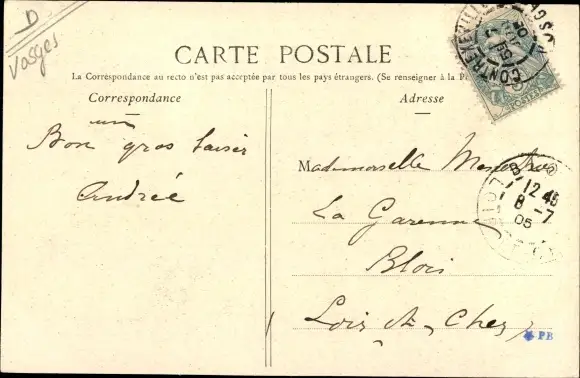 D
Vosges
CARTE POSTALE
La Correspondance au recto n'est pas acceptée par tous les pays étrangers. (Se renseigner à la P
Correspondance
Adresse
un
Bon gros baiser
Andrée
Mademoiselle
La Garenne
Blois
Loir-et-Cher
CONTREXÉVILLE
VOSGES
POSTES
BLOIS
12 45
8 -7
05
PB